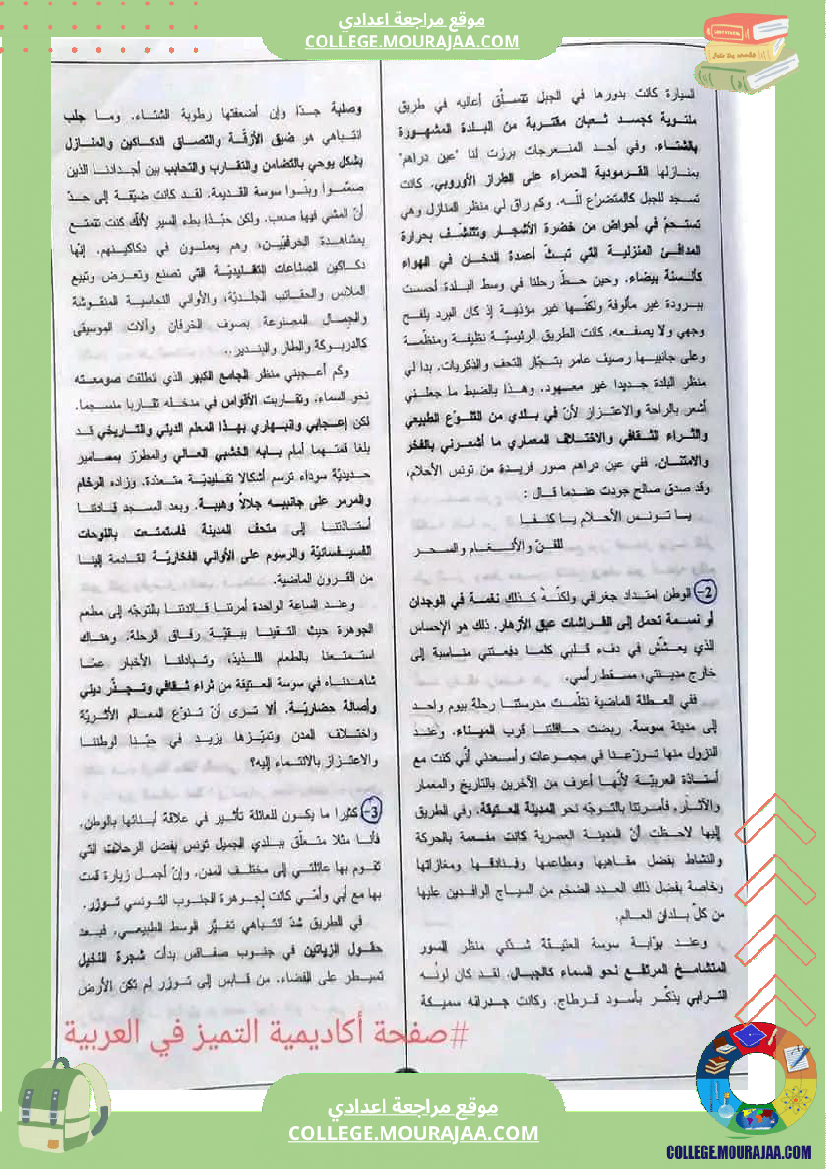 موقع مراجعة اعدادي
COLLEGE.MOURAJAA.COM
السيارة كانت بدورها في الجبل تتسلّق أعاليه في طريق
ملتوية كجسد ثعبان مقتربة من البلدة المشهورة
بالشتاء. وفي أحد المنعرجات برزت لنا "عين دراهم"
بمنازلها القرمودية الحمراء على الطراز الأوروبي. كانت
تسجد للجبل كالمتضرّع لله. وكم راق لي منظر المنازل وهي
تستحمّ في أحواض من خضرة الأشجار وتتنشّف بحرارة
المدافئ المنزلية التي تبثّ أعمدة الدخان في الهواء
كألسنة بيضاء. وحين حطّ رحلنا في وسط البلدة أحسست
ببرودة غير مألوفة ولكنّها غير مؤذية إذ كان البرد يلفح
وجهي ولا يصفعه. كانت الطريق الرئيسيّة نظيفة ومنظّمة
وعلى جانبيها رصيف عامر بتجّار التحف والذكريات. بدا لي
منظر البلدة جديدا غير معهود. وهذا بالضبط ما جعلني
أشعر بالراحة والاعتزاز لأنّ في بلدي من التنوّع الطبيعي
والثراء الثقافي والاختلاف المعماري ما أشعرني بالفخر
والامتنان. ففي عين دراهم صور فريدة من تونس الأحلام،
وقد صدق صالح جودت عندما قال :
يا تونس الأحلام يا كنفا
للفنّ والأنغام والسحر
2- الوطن امتداد جغرافي ولكنّه كذلك نغمة في الوجدان
أو نسمة تحمل إلى الفراشات عبق الأزهار. ذلك هو الإحساس
الذي يعشّش في دفء قلبي كلما دفعتني مناسبة إلى
خارج مدينتي، مسقط رأسي.
ففي العطلة الماضية نظّمت مدرستنا رحلة بيوم واحد
إلى مدينة سوسة. ربضت حافلتنا قرب الميناء. وعند
النزول منها توزّعنا في مجموعات وأسعدني أنّي كنت مع
أستاذة العربيّة لأنّها أعرف من الآخرين بالتاريخ والمعمار
والآثار. فأمرتنا بالتوجّه نحو المدينة العتيقة. وفي الطريق
إليها لاحظت أنّ المدينة العصرية كانت مفعمة بالحركة
والنشاط بفضل مقاهيها ومطاعمها وفنادقها ومغازاتها
وخاصة بفضل ذلك العدد الضخم من السياح الوافدين عليها
من كلّ بلدان العالم.
وعند بوّابة سوسة العتيقة شدّني منظر السور
المتشامخ المرتفع نحو السماء كالجبال. لقد كان لونه
الترابي يذكّر بأسود قرطاج. وكانت جدرانه سميكة
وصلبة جدّا وإن أضعفتها رطوبة الشتاء. وما جلب
انتباهي هو ضيق الأزقّة والتصاق الدكاكين والمنازل
بشكل يوحي بالتضامن والتقارب والتحابب بين أجدادنا الذين
صمّموا وبنوا سوسة القديمة. لقد كانت ضيّقة إلى حدّ
أنّ المشي فيها صعب. ولكن حبّذا بطء السير لأنّك كنت تتمتع
بمشاهدة الحرفيّين، وهم يعملون في دكاكينهم. إنّها
دكاكين الصناعات التقليديّة التي تصنع وتعرض وتبيع
الملابس والحقائب الجلديّة، والأواني النحاسية المنقوشة
والجمال المصنوعة بصوف الخرفان وآلات الموسيقى
كالدربوكة والطار والبندير..
وكم أعجبني منظر الجامع الكبير الذي تطلقت صومعته
نحو السماء، وتقاربت الأقواس في مدخله تقاربا منسجما.
لكن إعجابي وانبهاري بهذا المعلم الديني والتاريخي قد
بلغا قمتهما أمام بابه الخشبي العالي والمطرّز بمسامير
حديديّة سوداء ترسم أشكالا تقليديّة متعدّدة. وزاده الرخام
والمرمر على جانبيه جلالا وهيبة. وبعد المسجد قادتنا
أستاذتنا إلى متحف المدينة فاستمتعت باللوحات
الفسيفسائيّة والرسوم على الأواني الفخاريّة القادمة إلينا
من القرون الماضية.
وعند الساعة الواحدة أمرتنا قائدتنا بالتوجّه إلى مطعم
الجوهرة حيث التقينا ببقيّة رفاق الرحلة. وهناك
استمتعنا بالطعام اللذيذ، وتبادلنا الأخبار عمّا
شاهدناه في سوسة العتيقة من ثراء ثقافي وتجذّر ديني
وأصالة حضاريّة. ألا ترى أنّ تنوّع المعالم الأثريّة
واختلاف المدن وتميّزها يزيد في حبّنا لوطننا
والاعتزاز بالانتماء إليه؟
3- كثيرا ما يكون للعائلة تأثير في علاقة أبنائها بالوطن.
فأنا مثلا متعلّق ببلدي الجميل تونس بفضل الرحلات التي
تقوم بها عائلتي إلى مختلف المدن. وإنّ أجمل زيارة قمت
بها مع أبي وأمّي كانت لجوهرة الجنوب التونسي توزر.
في الطريق شدّ انتباهي تغيّر الوسط الطبيعي. فبعد
حقول الزياتين في جنوب صفاقس بدأت شجرة النخيل
تسيطر على الفضاء. من قابس إلى توزر لم تكن الأرض
#صفحة أكاديمية التميز في العربية
موقع مراجعة اعدادي
COLLEGE.MOURAJAA.COM
COLLEGE.MOURAJAA.COM